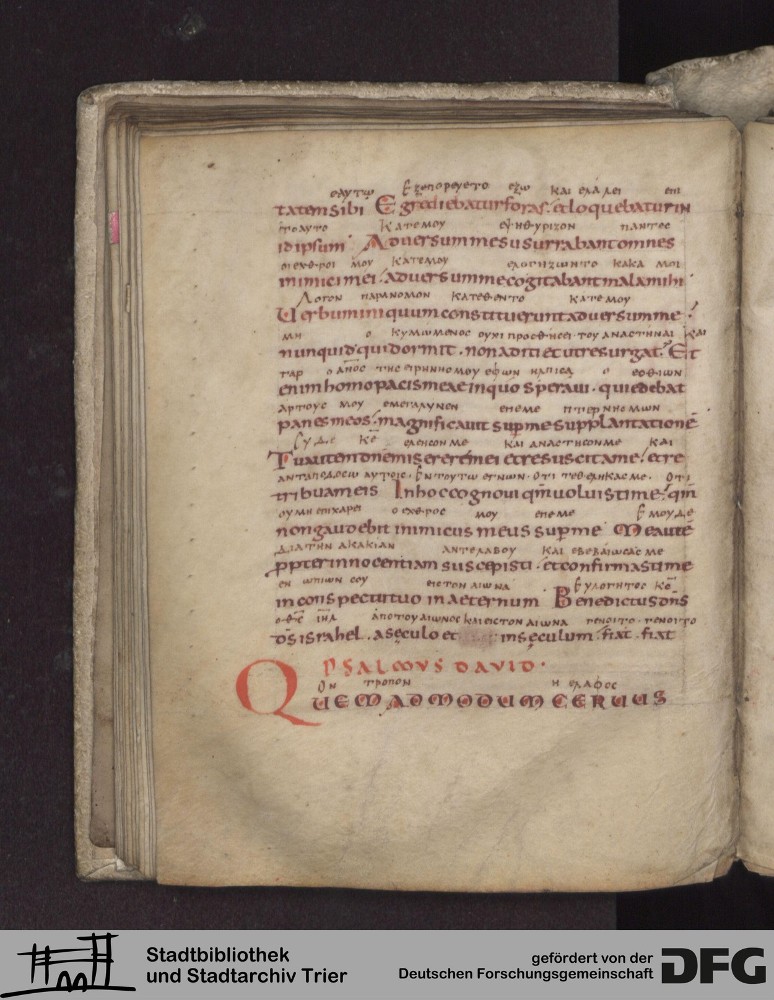 εαυτω Εξεπορευετο εξω και ελαλει επι
tatem sibi Egrediebatur foras. et loquebatur in
το αυτο Κατ εμου εψηθυριζον παντες
id ipsum Aduersum me susurrabant omnes
οι εχθροι μου κατ εμου ελογηζωντο κακα μοι
inimici mei. aduersum me cogitabant mala mihi
Λογον παρανομον κατεθεντο κατ εμου
Uerbum iniquum constituerunt aduersum me
μη ο κυμωμενος ουχι προσθησει του αναστηναι και
nunquid qui dormit. non adiciet ut resurgat. Et
γαρ ο ανος της ειρηνης μου εφ ων ηλπισα ο εσθιων
enim homo pacis meae in quo speraui. qui edebat
αρτους μου εμεγαλυνεν επ εμε πτερνησμων
panes meos. magnificauit sup me supplantatione
Συ δε κε ελεησον με και αναστησον με και
Tu autem dne miserere mei et resuscita me. et re
ανταποδοσω αυτοις. Εν τουτω εγνων. οτι τεθεληκας με. οτι
tribuam eis In hoc cognoui qm uoluisti me. qm
ου μη επιχαρει ο εχθρος μου επ εμε Εμου δε
non gaudebit inimicus meus sup me Me aute
δια την ακακιαν αντελαβου και εβεβαιωσας με
ppter innocentiam suscepisti. et confirmasti me
εν ωπιων σου εις τον αιωνα Ευλογητος κς
in conspectu tuo in aeternum Benedictus dns
ο θς ιηλ απο του αιωνος και εις τον αιωνα γενοιτο. γενοιτο
ds israhel. a seculo et in seculum. fiat. fiat
PSALMVS DAVID.
Ον τροπον η ελαφος
QUEMADMODUM CERUUS
Stadtbibliothek
und Stadtarchiv Trier
gefördert von der
Deutschen Forschungsgemeinschaft
DFG